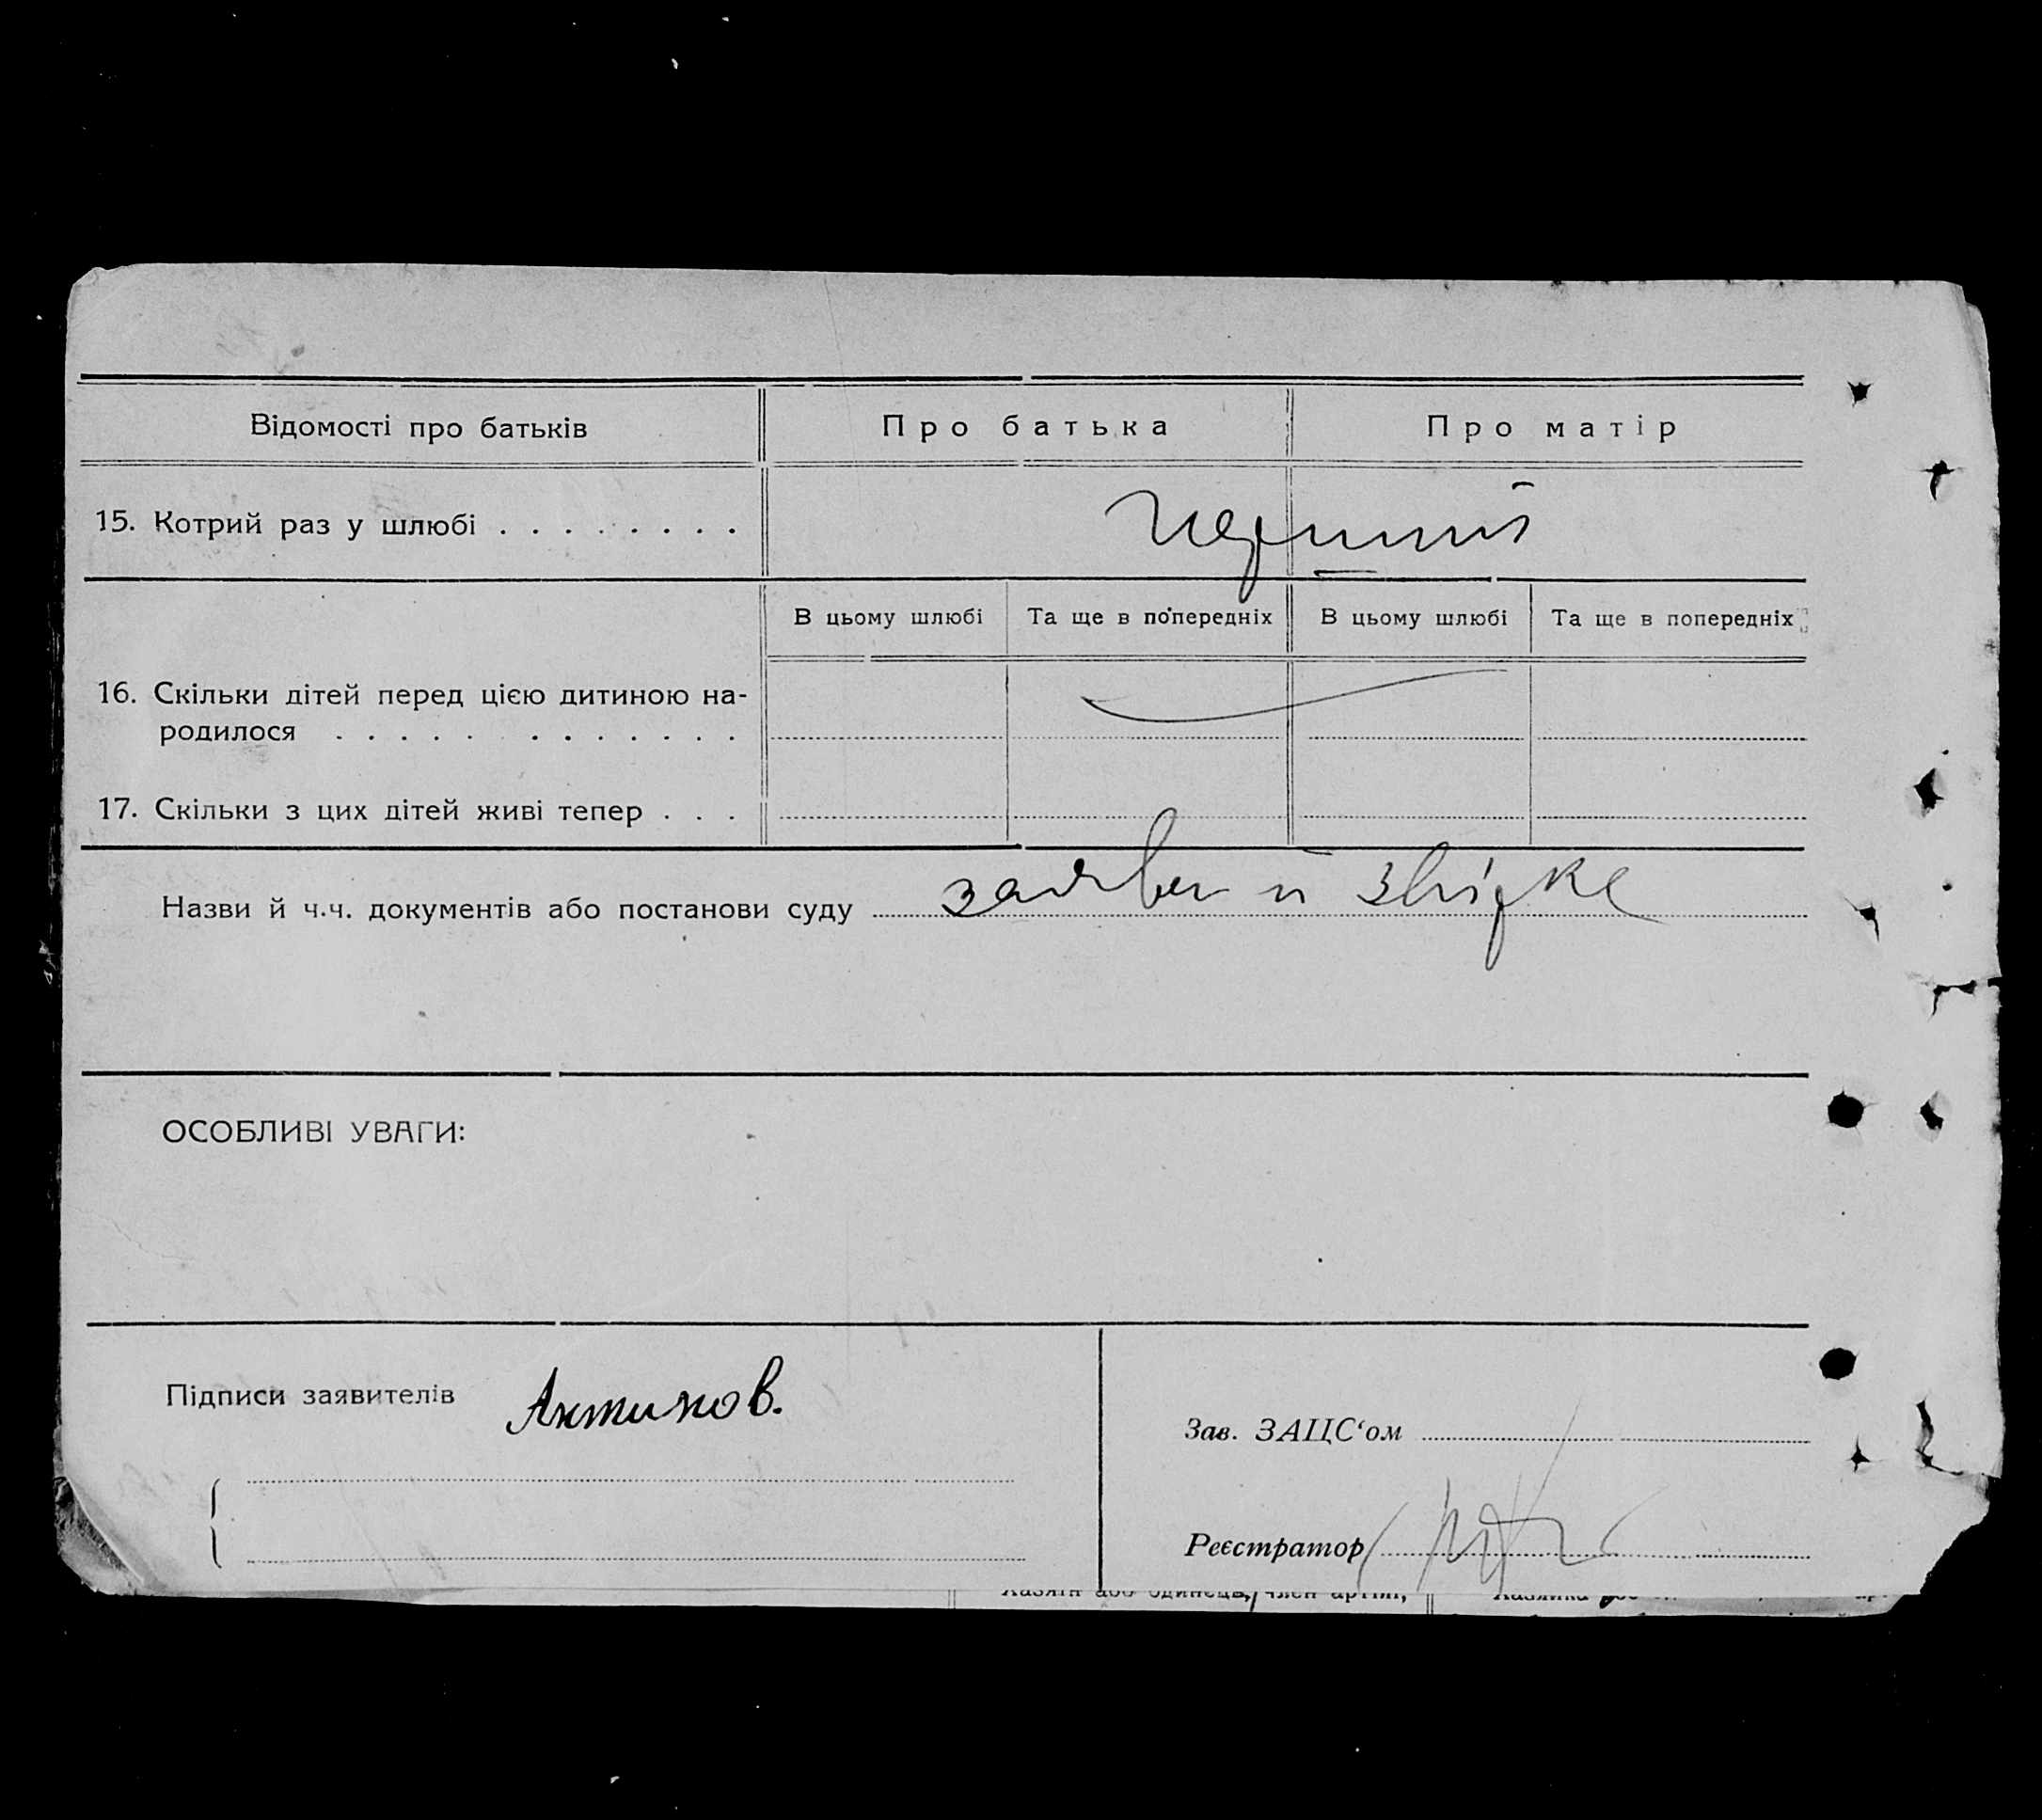 Відомості про батьків Про батька Про матір
15. Котрий раз у шлюбі . . . . . . . . перший
В цьому шлюбі Та ще в попередніх В цьому шлюбі Та ще в попередніх
16. Скільки дітей перед цією дитиною на-
родилося . . . . . . . . . . . . .
17. Скільки з цих дітей живі тепер . . .
Назви й ч.ч. документів або постанови суду заяви й звідке
ОСОБЛИВІ УВАГИ:
Підписи заявителів Антипов.
Зав. ЗАЦС‘ом
Реєстратор
Хазяїн або одинець, член артілі,